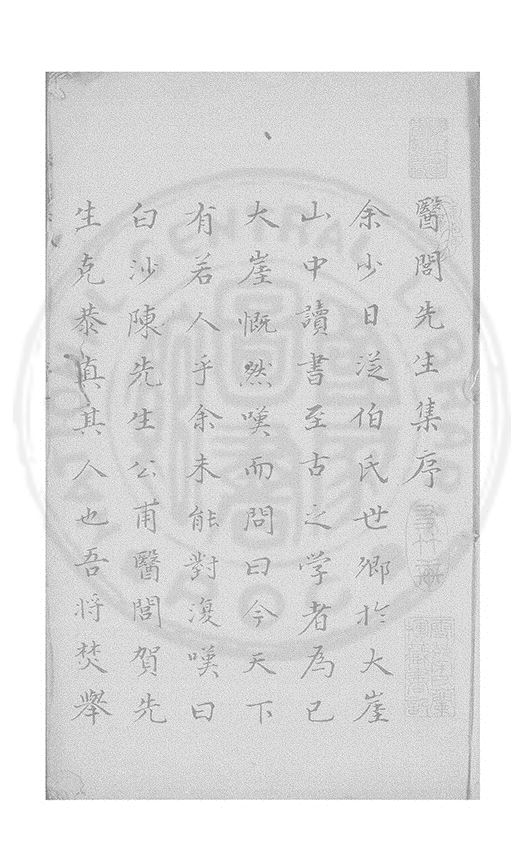 醫閭先生集序
余少日從伯氏世卿於大崖
山中讀書至古之学者為己
大崖慨然嘆而問曰今天下
有若人乎余未能對復嘆曰
白沙陳先生公甫醫閭賀先
生克恭真其人也吾将焚舉